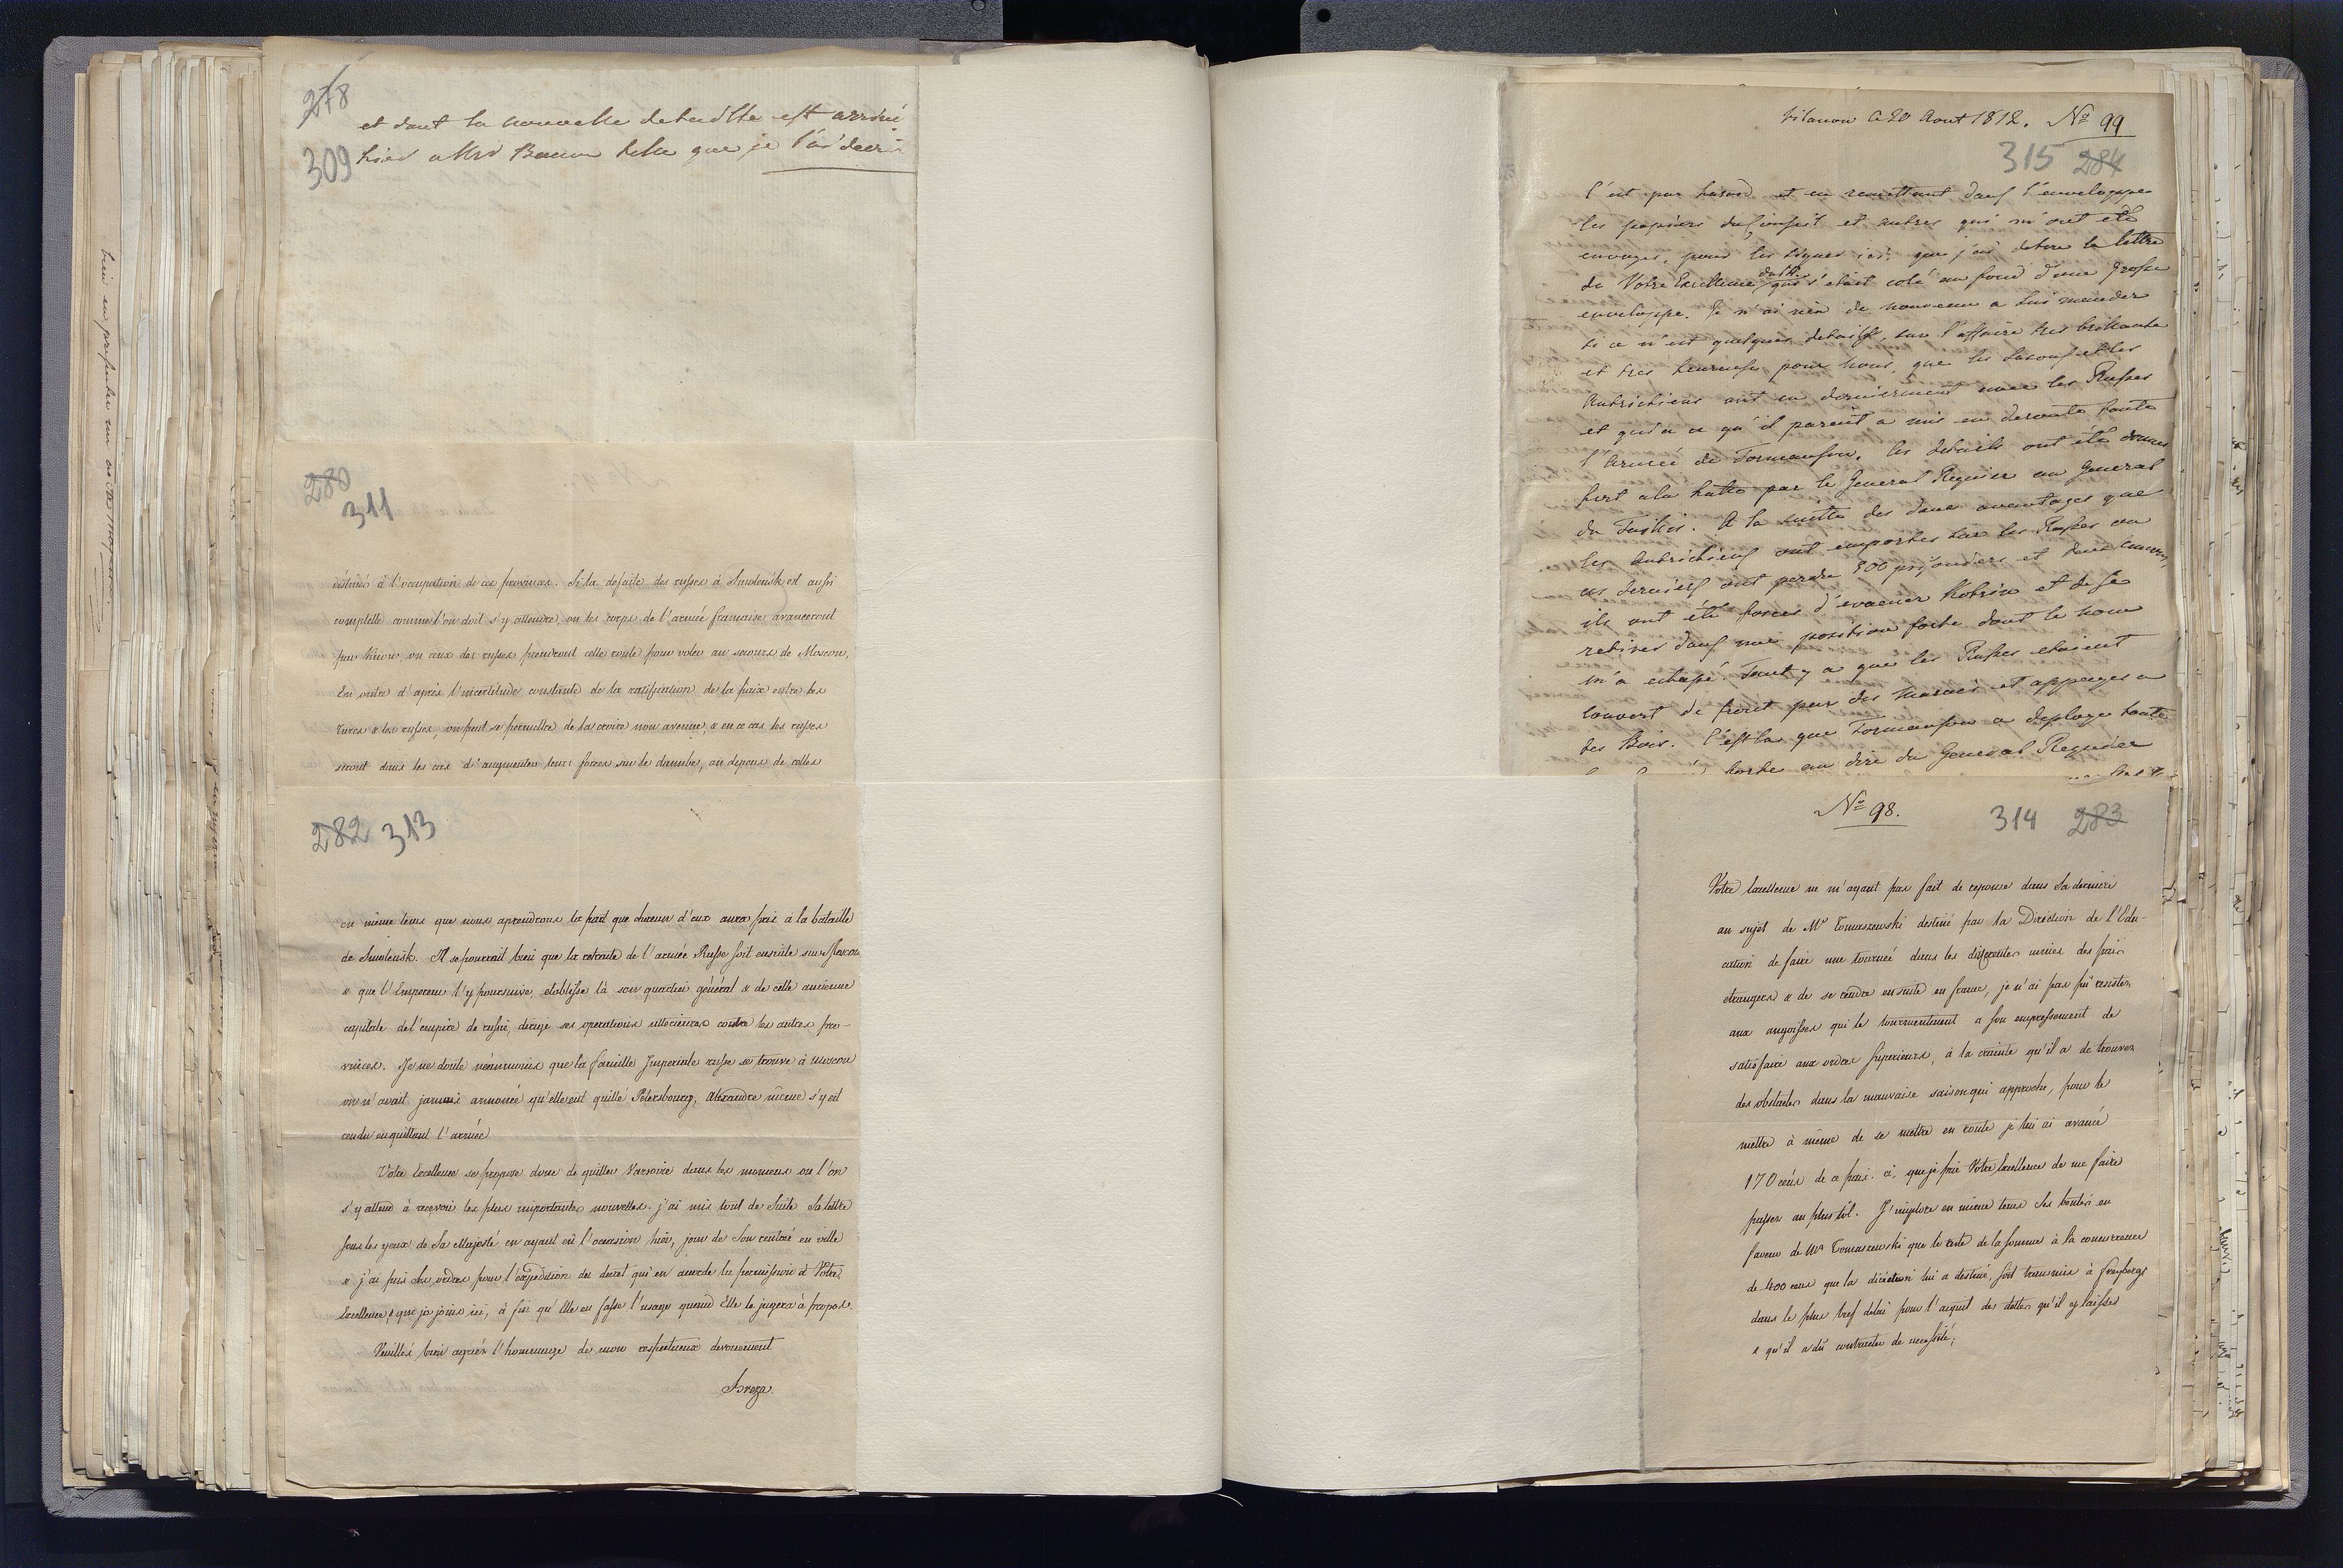 278
309
et dont la nouvelle detaillée est arrivé
hier a Mr Baum telle que je l'ai decri
280
311
destinés à l'occupation de ces provinces. Si la defaite des russes à Smolensk est aussi
complette comme l'on doit s'y attendre, ou les corps de l'armée francaise avanceront
par Kiiow ou ceux des russes prendront cette route pour voler au secours de Moscou.
En outre d'après l'incertitude constante de la ratification de la paix entre les
turcs & les russes, on peut se permettre de la croire non avenue, & en ce cas les russes
seront dans les cas d'augmenter leurs forces sur le danube, au depens de celles
282 313
en même tems que nous aprendrons la part que chacun d'eux aura pris à la bataille
de Smolensk. Il se pourrait bien que la retraite de l'armée Russe soit ensuite sur Moscou
& que l'Empereur l'y poursuive, etablisse là son quartier général & de cette ancienne
capitale de l'empire de russie, dirige ses operations ulterieures contre les autres pro-
vinces. Je ne doute néanmoins que la famille Imperiale russe se trouve à Moscou
on n'avait jamais annoncé qu'elle eut quitté Petersbourg, Alexandre même s'y est
rendu en quittant l'armée.
Votre Excellence se propose donc de quitter Varsovie dans les momens ou l'on
s'y attend à recevoir les plus importantes nouvelles. j'ai mis tout de suite Sa lettre
sous les yeux de Sa Majesté en ayant eu l'occasion hier, jour de Son rentrée en ville
& j'ai pris Ses ordres pour l'expedition du decret qui en accorde la permission à Votre
Excellence, & que je joins ici, à fin qu'Elle en fasse l'usage quand Elle le jugera à propos.
Veuillez bien agréer l'hommage de mon respectueux devouement
Breza
bien en presenter un acte
Vilanow ce 20 Aout 1812. No 99
315 284
C'est par hasard et en remettant dans l'enveloppe
les papiers du Conseil et autres qui m'ont été
envoyes, pour les signer ici, que j'ai detere la lettre
de Votre Excellence qui s'etait colé au fond d'une grosse
enveloppe. Je n'ai rien de nouveau a lui mander
si ce n'est quelques details, sur l'affaire tres brillante
et tres heureuse pour nous, que les Saxons et les
Autrichiens ont eu dernierement avec les Russes
et qui a ce qu'il parait a mis en deroute toute
l'armée de Tormansow. les details ont été donnes
fort a la hatte par le General Regnier au General
du Taillis. A la suitte des deux avantages que
les Autrichiens ont emportes sur les Russes ou
ces derniers ont perdu 300 prisoniers et deux canons,
ils ont été forces d'evacuer Kobrin et de se
retirer dans une position forte dont le nom
m'a echapé. Tant y a que les Russes etaient
couvert de front par des marais et appuyes a
des Bois. C'est la que Tormansow a deploye toute
forte au dire du General Regnier
No 98.
314 283
Votre Excellence ne m'ayant pas fait de reponse dans Sa derniere
au sujet de Mr Tomaszewski destiné par la Direction de l'Edu-
cation de faire une tournée dans les differentes mines des pais
etrangers & de se rendre ensuite en france, je n'ai pas pû resister
aux angoisses qui le tourmentaient a son empressement de
satisfaire aux ordres superieurs, à la crainte qu'il a de trouver
des obstacles dans la mauvaise saison qui approche, pour le
mettre à même de se mettre en route je lui ai avancé
170 ecus de ce pais-ci, que je prie Votre Excellence de me faire
passer au plus tôt. J'implore en même tems Ses bontés en
faveur de Mr Tomaszewski que le reste de la somme à la concurrence
de 400 ecus que la direction lui a destiné, soit transmis à Freyberg
dans le plus bref delai pour l'acquit des dettes qu'il y laisse
& qu'il a dû contracter de necessité;